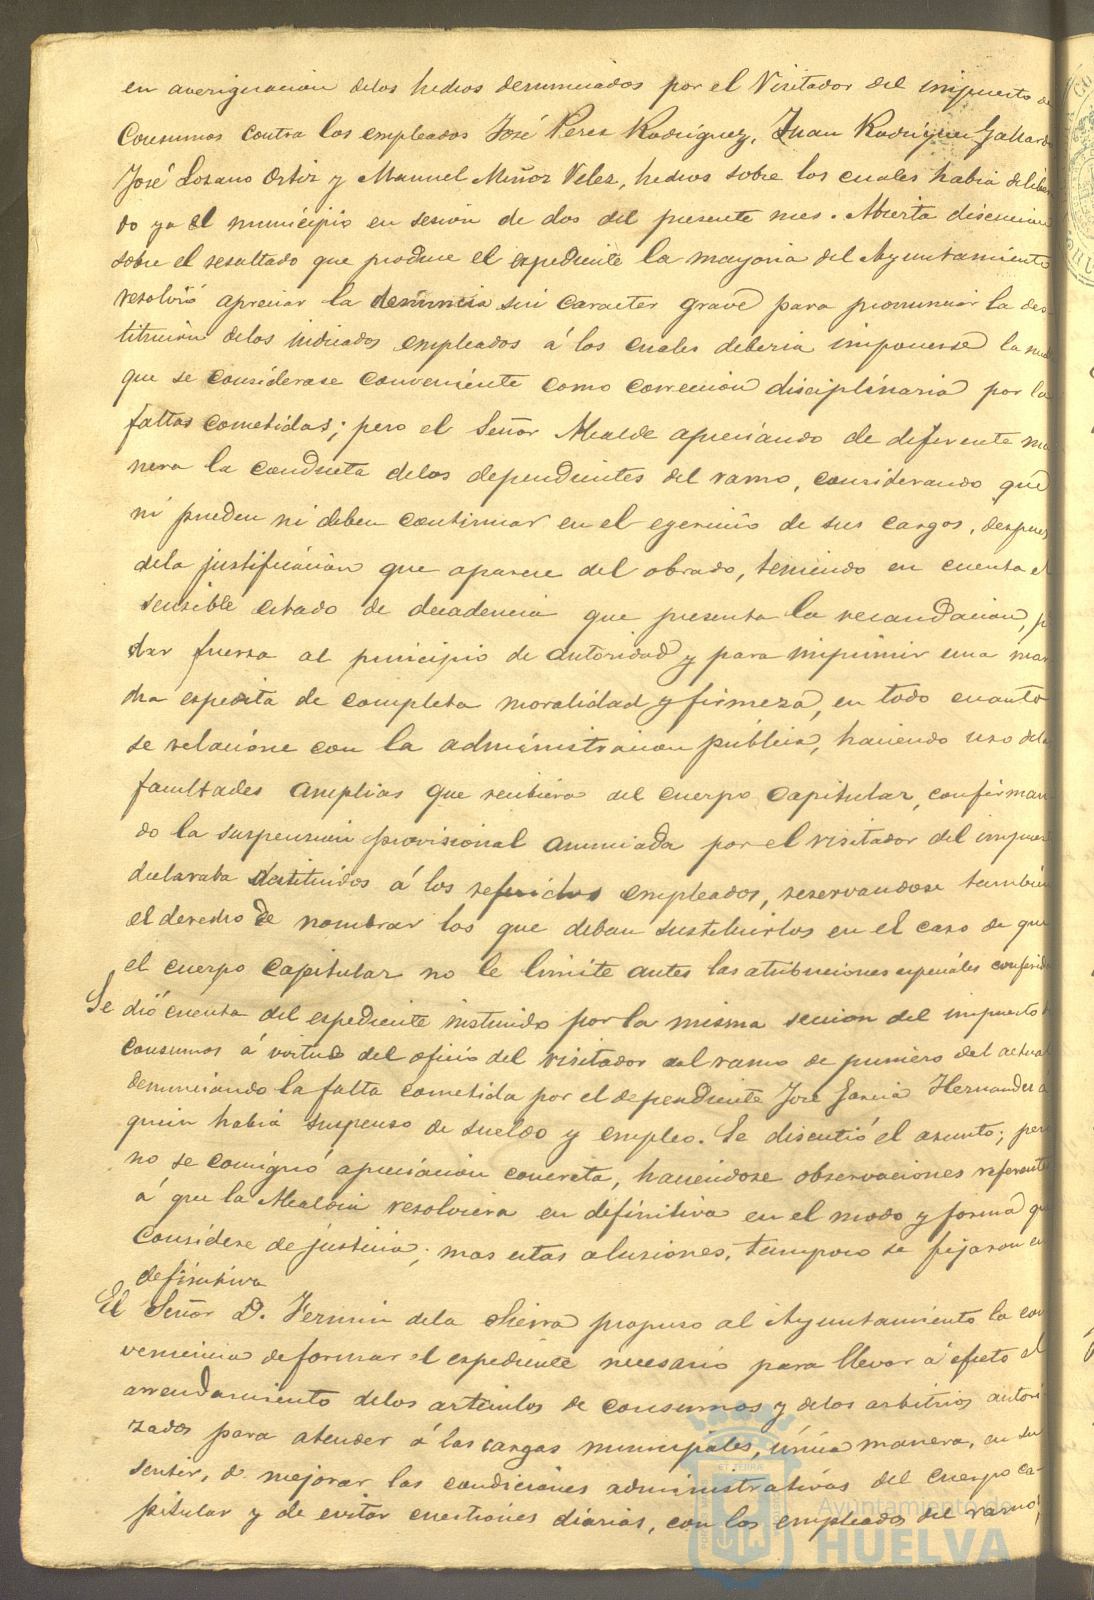 en averiguacion delos hechos denunciados por el Visitador del impuesto de
Consumos contra los empleados José Peres Rodriguez, Juan Rodriguez Gallardo
José Lozano Ortiz y Manuel Muñoz Velez, hechos sobre los cuales habia delibera
do ya el municipio en sesión de dos del presente mes. Abierta discucion
sobre el resultado que produce el espediente la mayoria del Ayuntamiento
resolvió apreciar la denuncia sin caracter grave para pronunciar la des
titucion delos indicados empleados á los cuales deberia imponerse la
que se considerase conveniente como correccion disciplinaria por la
faltas cometidas; pero el Señor Alcalde apreciando de diferente ma
nera la conducta delos dependientes del ramo, considerando que
ni pueden ni deben continuar en el egercicio de sus cargos, despues
dela justificacion que aparece del obrado, teniendo en cuenta el
sensible estado de decadencia que presenta la recaudacion, p
dar fuerza al principio de autoridad y para imprimir una mar
cha espedita de completa moralidad y firmeza, en todo cuanto
se relacione con la administracion pública, haciendo uso dela
facultades amplias que recibiera del cuerpo capitular, confirman
do la suspension provisional anunciada por el visitador del impues
declaraba destituidos á los referidos empleados, reservandose tambien
el derecho de nombrar los que deban sustituirlos en el caso de que
el cuerpo capitular no le limite antes las atribuciones especiales conferida
Se dió cuenta del espediente instruido por la misma seccion del impuesto d
consumos á virtud del oficio del visitador del ramo de primero del actual
denunciando la falta cometida por el dependiente José Garcia Hernandez a
quien habia suspenso de sueldo y empleo. Se discutió el asunto; pero
no se consignó apreciacion concreta, haciendose observaciones referente
á que la Alcaldia resolviera en definitiva en el modo y forma que
considere de justicia; mas estas alusiones, tampoco se fijaron en
definitiva
El Señor D. Fermin dela Sierra propuso al Ayuntamiento la con
veniencia de formar el espediente necesario para llevar á efecto el
arrendamiento delos articulos de consumos y delos arbitrios autori
zados para atender á las cargas municipales, única manera, en su
sentir, de mejorar las condiciones administrativas del cuerpo ca-
pitular y de evitar cuestiones diarias, con los empleados del ramo;
Ayuntamiento de
HUELVA